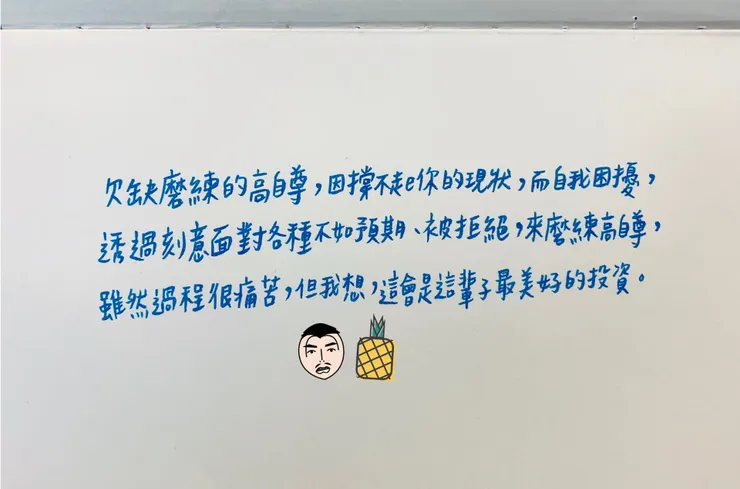 欠缺磨練的高自尊,因撐不起你的現狀,而自我困擾,
透過刻意面對各種不如預期、被拒絕,來磨練高自尊,
雖然過程很痛苦,但我想,這會是這輩子最美好的投資。